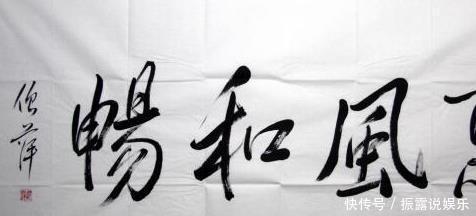 風和暢
倪萍
快传号／振露说娱乐